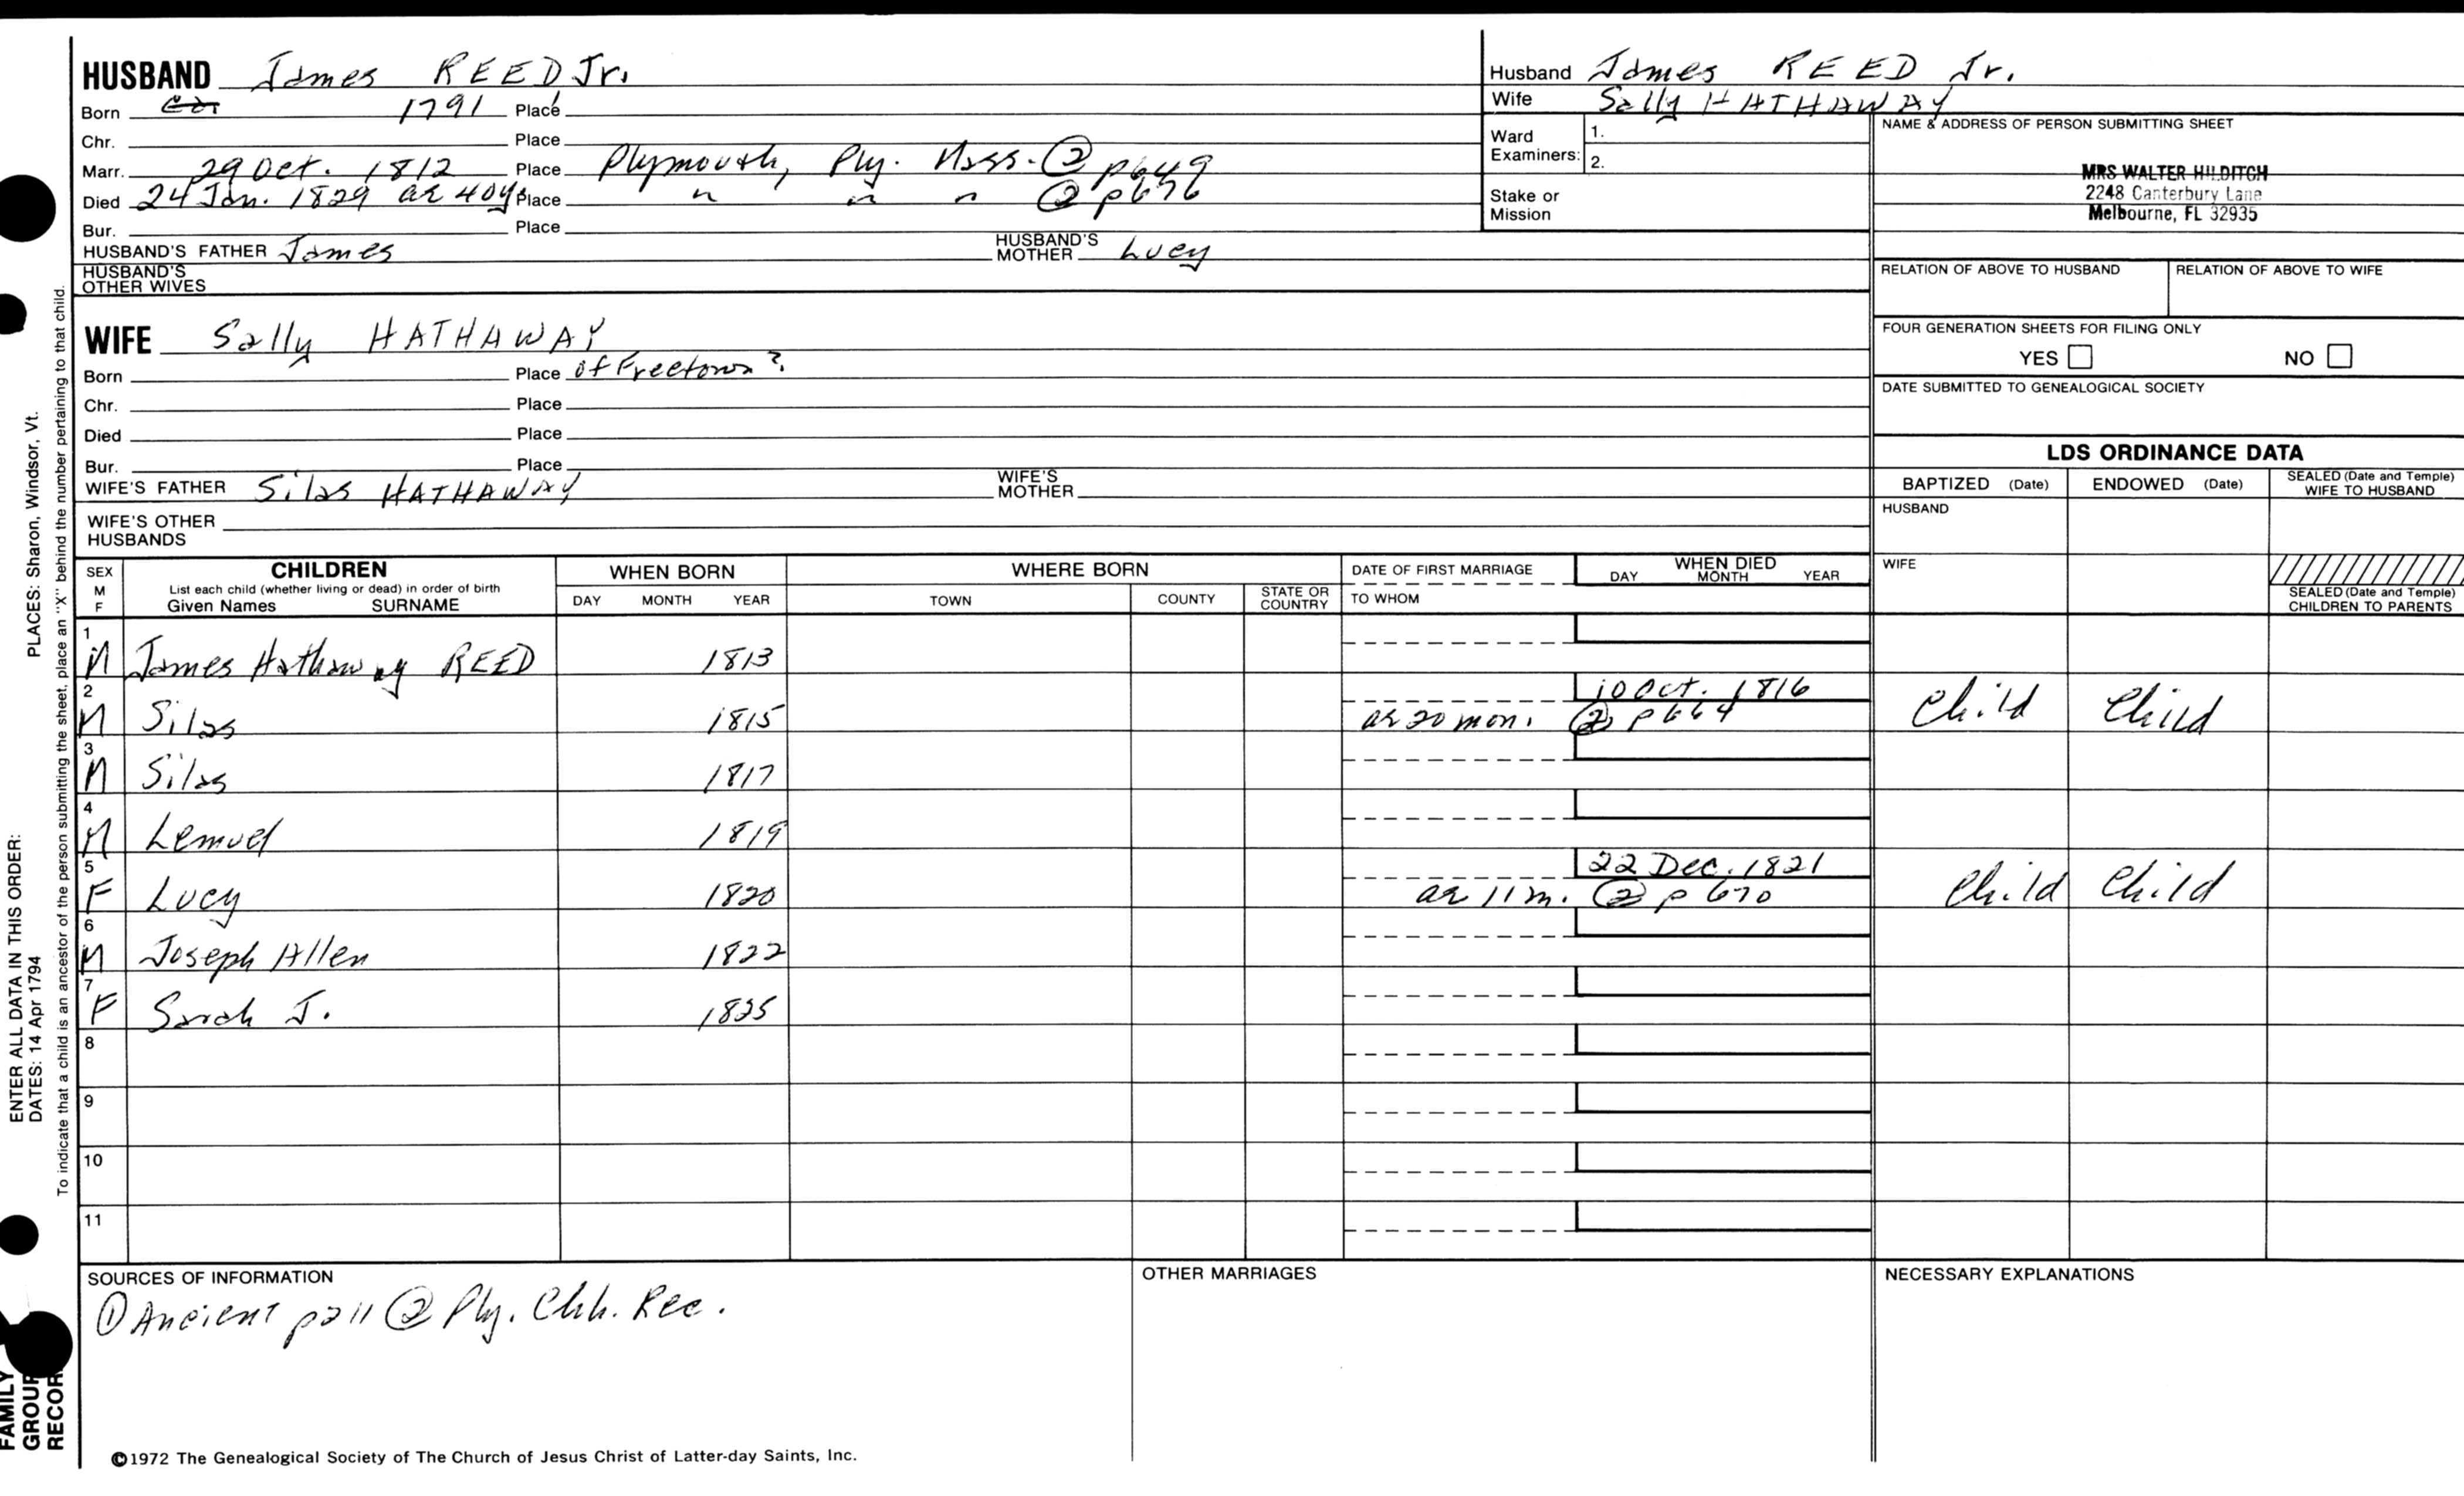 HUSBAND James REED Jr.
Born 1791 Place
Chr. Place
Marr. 29 Oct. 1812 Place Plymouth, Ply. Mass. ② p649
Died 24 Jan. 1829 ae 40ys Place " " " ② p676
Bur. Place
HUSBAND'S FATHER James HUSBAND'S MOTHER Lucy
HUSBAND'S OTHER WIVES
Husband James REED Jr.
Wife Sally HATHAWAY
Ward Examiners: 1.
2.
Stake or Mission
NAME & ADDRESS OF PERSON SUBMITTING SHEET
MRS WALTER HILDITCH
2248 Canterbury Lane
Melbourne, FL 32935
RELATION OF ABOVE TO HUSBAND RELATION OF ABOVE TO WIFE
FOUR GENERATION SHEETS FOR FILING ONLY
YES NO
DATE SUBMITTED TO GENEALOGICAL SOCIETY
WIFE Sally HATHAWAY
Born Place of Freetown?
Chr. Place
Died Place
Bur. Place
WIFE'S FATHER Silas HATHAWAY WIFE'S MOTHER
WIFE'S OTHER HUSBANDS
LDS ORDINANCE DATA
BAPTIZED (Date) ENDOWED (Date) SEALED (Date and Temple) WIFE TO HUSBAND
HUSBAND
WIFE
SEALED (Date and Temple) CHILDREN TO PARENTS
SEX M F
CHILDREN
List each child (whether living or dead) in order of birth
Given Names SURNAME
WHEN BORN
DAY MONTH YEAR
WHERE BORN
TOWN COUNTY STATE OR COUNTRY
DATE OF FIRST MARRIAGE
TO WHOM
WHEN DIED
DAY MONTH YEAR
1 M James Hathaway REED 1813
2 M Silas 1815 10 Oct. 1816 Child Child
ae 20 mon. ② p664
3 M Silas 1817
4 M Lemuel 1819
5 F Lucy 1820 22 Dec. 1821 Child Child
ae 11 m. ② p 670
6 M Joseph Allen 1822
7 F Sarah J. 1825
8
9
10
11
SOURCES OF INFORMATION
① Ancient p211 ② Ply. Chh. Rec.
OTHER MARRIAGES
NECESSARY EXPLANATIONS
©1972 The Genealogical Society of The Church of Jesus Christ of Latter-day Saints, Inc.
ENTER ALL DATA IN THIS ORDER:
DATES: 14 Apr 1794 PLACES: Sharon, Windsor, Vt.
To indicate that a child is an ancestor of the person submitting the sheet, place an "X" behind the number pertaining to that child.
FAMILY
GROUP
RECOR